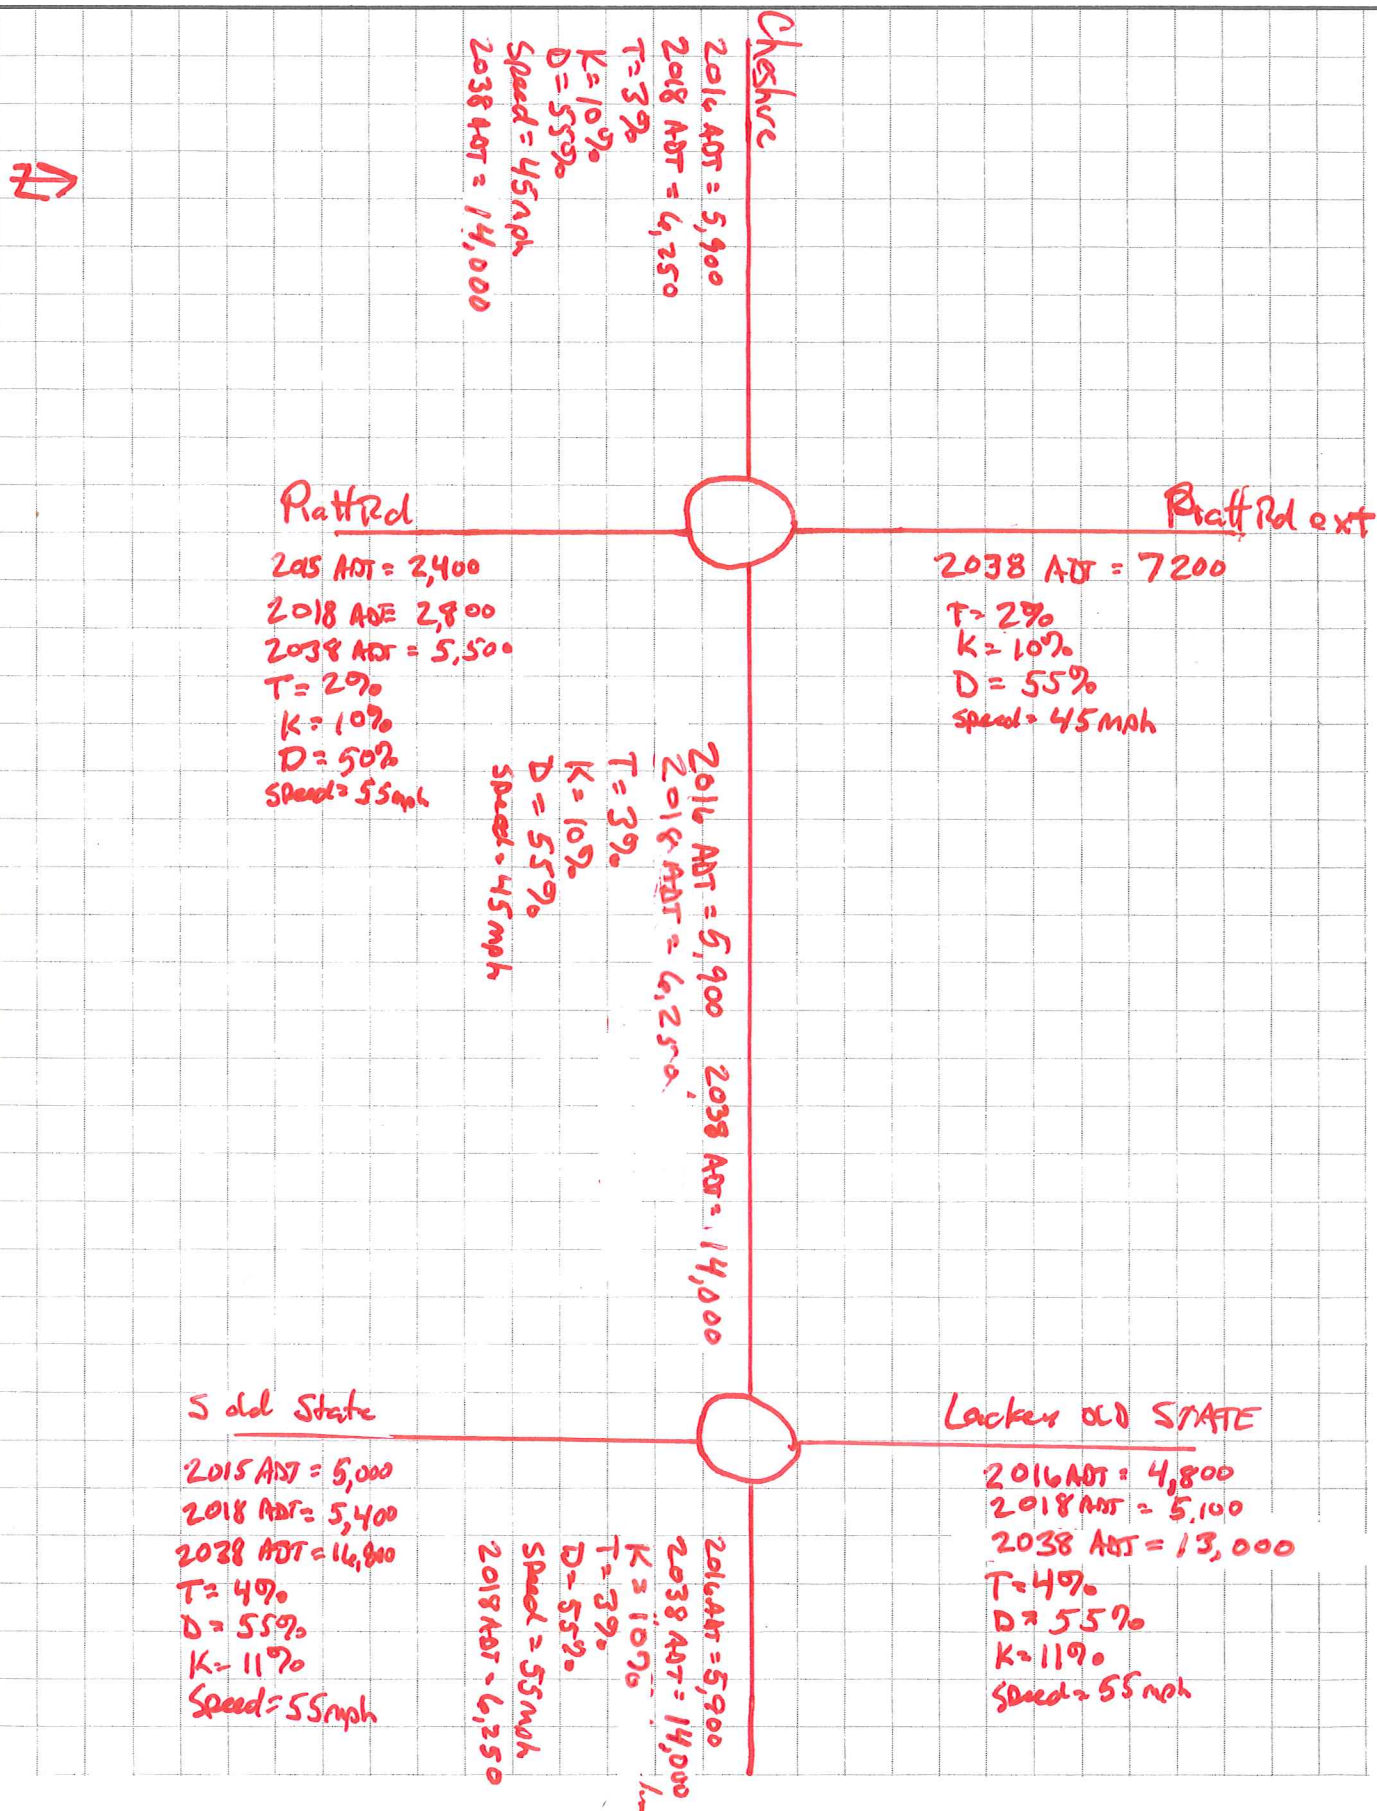 Cheshire
2016 ADT = 5,900
2018 ADT = 6,250
T = 3%
K = 10%
D = 55%
Speed = 45mph
2038 ADT = 14,000
N
Piatt Rd
2015 ADT = 2,400
2018 ADT 2,800
2038 ADT = 5,500
T = 2%
K = 10%
D = 50%
Speed = 55mph
Piatt Rd ext
2038 ADT = 7200
T = 2%
K = 10%
D = 55%
Speed = 45mph
2016 ADT = 5,900 2038 ADT = 14,000
2018 ADT = 6,250
T = 3%
K = 10%
D = 55%
Speed = 45mph
S old State
2015 ADT = 5,000
2018 ADT = 5,400
2038 ADT = 16,800
T = 4%
D = 55%
K = 11%
Speed = 55mph
Lackey OLD STATE
2016 ADT = 4,800
2018 ADT = 5,100
2038 ADT = 13,000
T = 4%
D = 55%
K = 11%
Speed = 55mph
2016 ADT = 5,900
2038 ADT = 14,000
K = 10%
T = 3%
D = 55%
Speed = 55mph
2018 ADT = 6,250